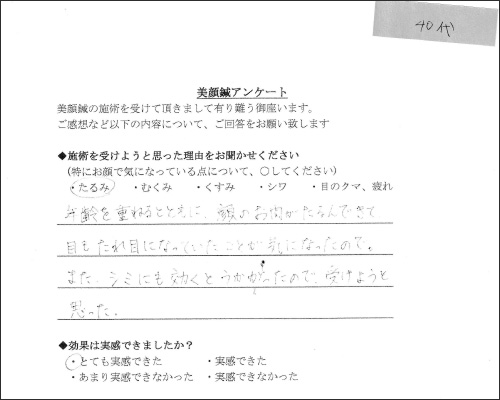 40代
美顔鍼アンケート
美顔鍼の施術を受けて頂きまして有り難う御座います。
ご感想など以下の内容について、ご回答をお願い致します
◆施術を受けようと思った理由をお聞かせください
(特にお顔で気になっている点について、○してください)
・たるみ ・むくみ ・くすみ ・シワ ・目のクマ、疲れ
年齢を重ねるとともに、顔のお肉がたるんできて
目もたれ目になっていたことが気になったので。
また、シミにも効くとうかがったので、受けようと
思った。
◆効果は実感できましたか？
・とても実感できた ・実感できた
・あまり実感できなかった ・実感できなかった